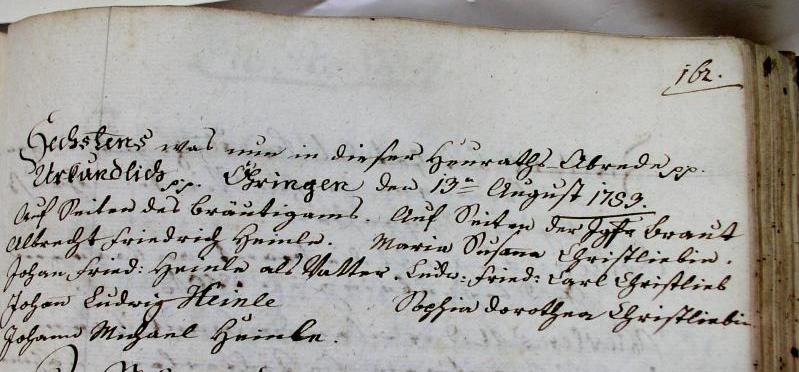 162.
Sechstens was nun in dieser Heuraths-Abrede pp.
Urkundlich pp. Öhringen den 13n August 1753.
Auf Seiten des Bräutigams. Auf Seiten der Jgfr Braut
Albrecht Friedrich Heinle. Maria Susanna Christliebin.
Johan Fried: Heinle als Vatter. Ludw: Fried: Carl Christlieb
Johan Ludwig Heinle Sophia Dorothea Christliebin
Johann Michael Heinle.